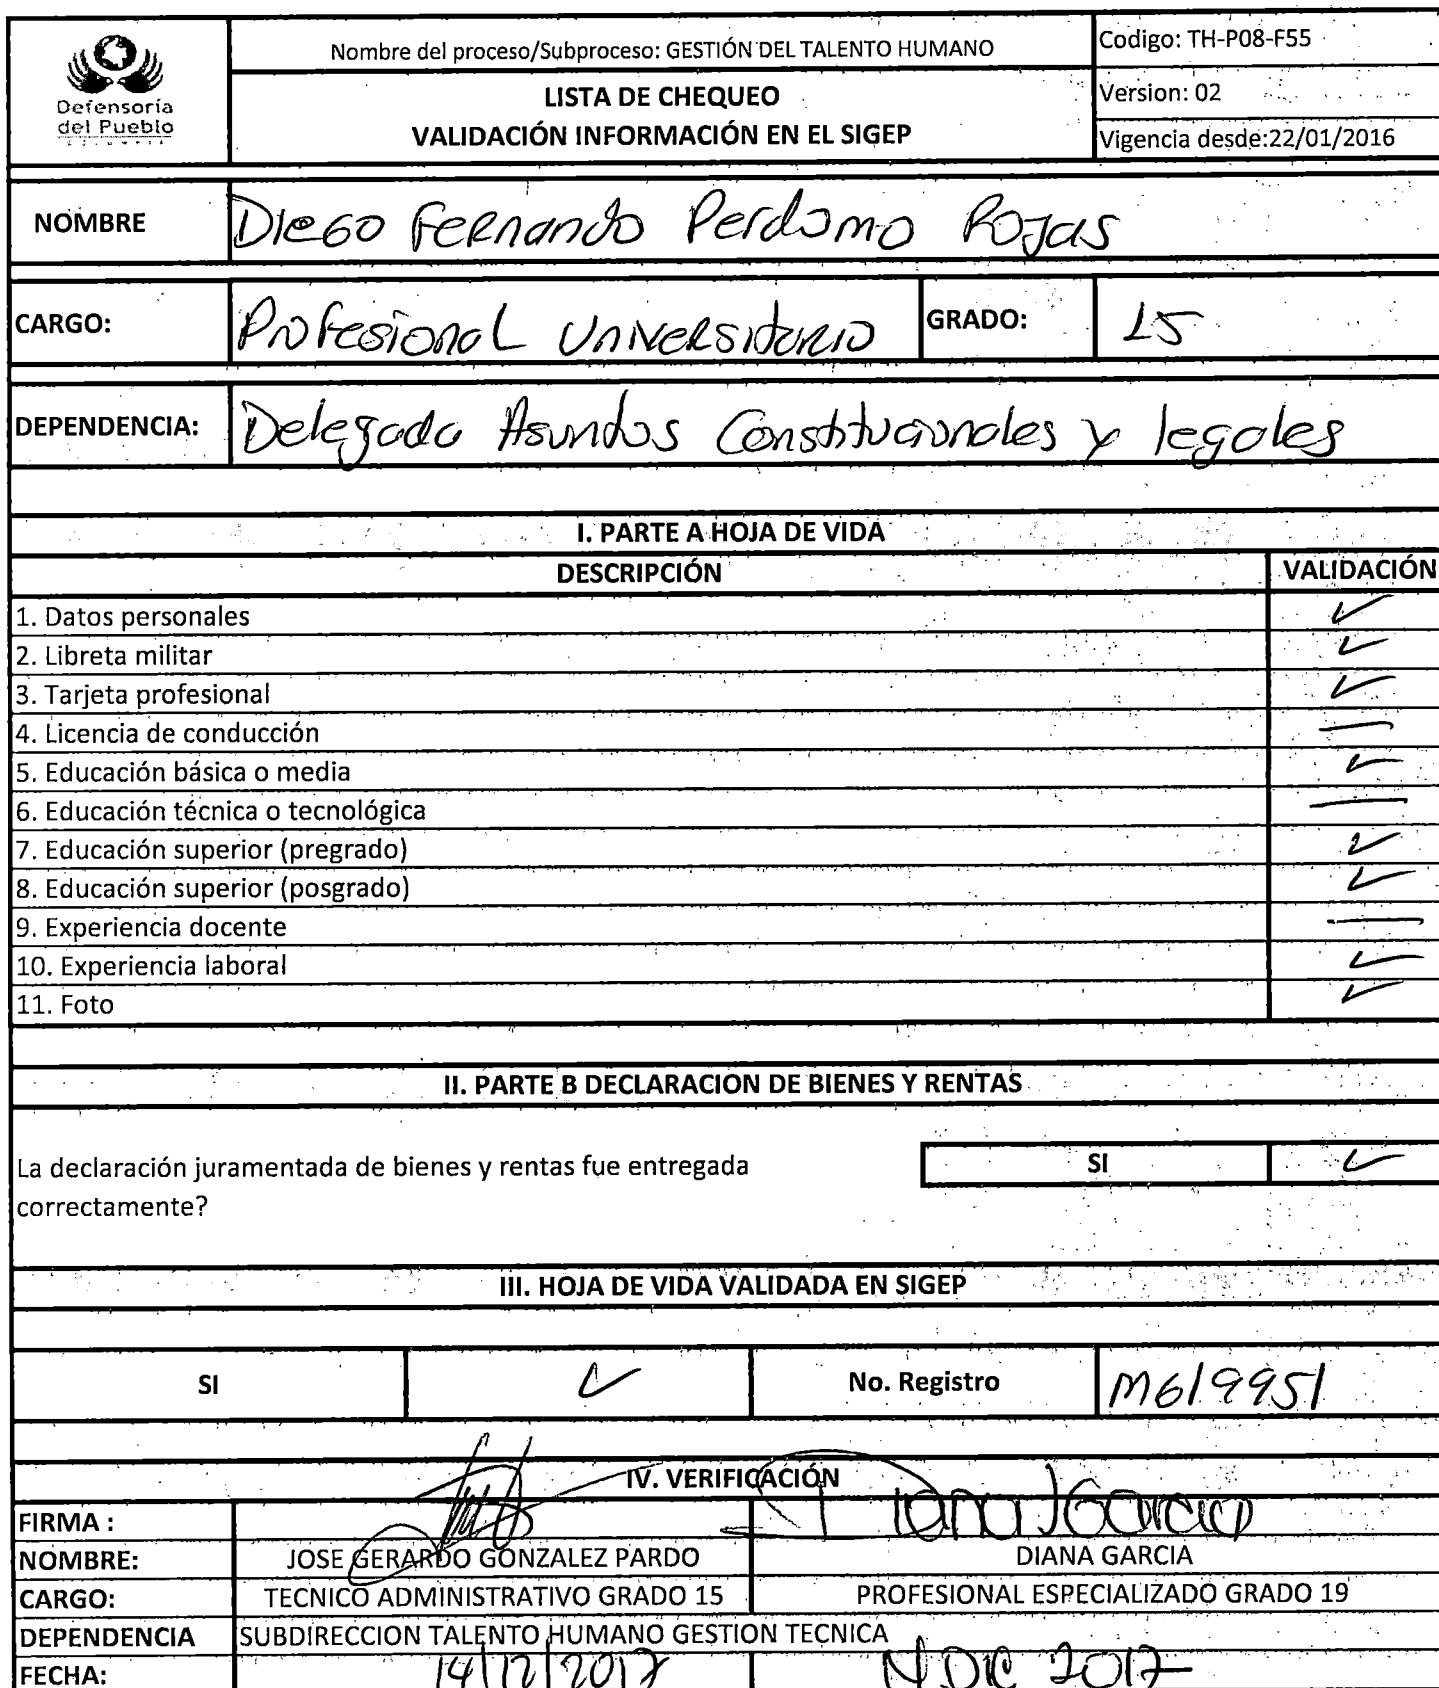 Defensoría
del Pueblo
Nombre del proceso/Subproceso: GESTIÓN DEL TALENTO HUMANO
Codigo: TH-P08-F55
LISTA DE CHEQUEO
VALIDACIÓN INFORMACIÓN EN EL SIGEP
Version: 02
Vigencia desde:22/01/2016
NOMBRE Diego Fernando Perdomo Rojas
CARGO: Profesional Universitario GRADO: 15
DEPENDENCIA: Delegada Asuntos Constitucionales y legales
I. PARTE A HOJA DE VIDA
DESCRIPCIÓN VALIDACIÓN
1. Datos personales ✓
2. Libreta militar ✓
3. Tarjeta profesional ✓
4. Licencia de conducción —
5. Educación básica o media ✓
6. Educación técnica o tecnológica —
7. Educación superior (pregrado) ✓
8. Educación superior (posgrado) ✓
9. Experiencia docente —
10. Experiencia laboral ✓
11. Foto ✓
II. PARTE B DECLARACION DE BIENES Y RENTAS
La declaración juramentada de bienes y rentas fue entregada
correctamente?
SI ✓
III. HOJA DE VIDA VALIDADA EN SIGEP
SI ✓ No. Registro M619951
IV. VERIFICACIÓN
FIRMA : Diana J Garcia
NOMBRE: JOSE GERARDO GONZALEZ PARDO DIANA GARCIA
CARGO: TECNICO ADMINISTRATIVO GRADO 15 PROFESIONAL ESPECIALIZADO GRADO 19
DEPENDENCIA SUBDIRECCION TALENTO HUMANO GESTION TECNICA
FECHA: 14/12/2017 DIC 2017